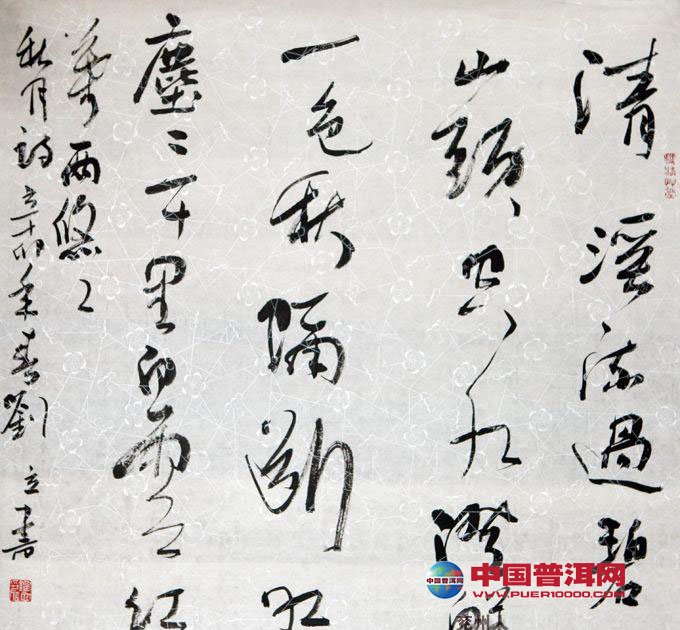 清溪流過碧
山頭空水澄鮮
一色秋隔斷紅
塵三十里白雲紅
葉兩悠々
秋月詩辛卯年春劉立書
中国普洱网
中国普洱网
WWW.PUER10000.COM